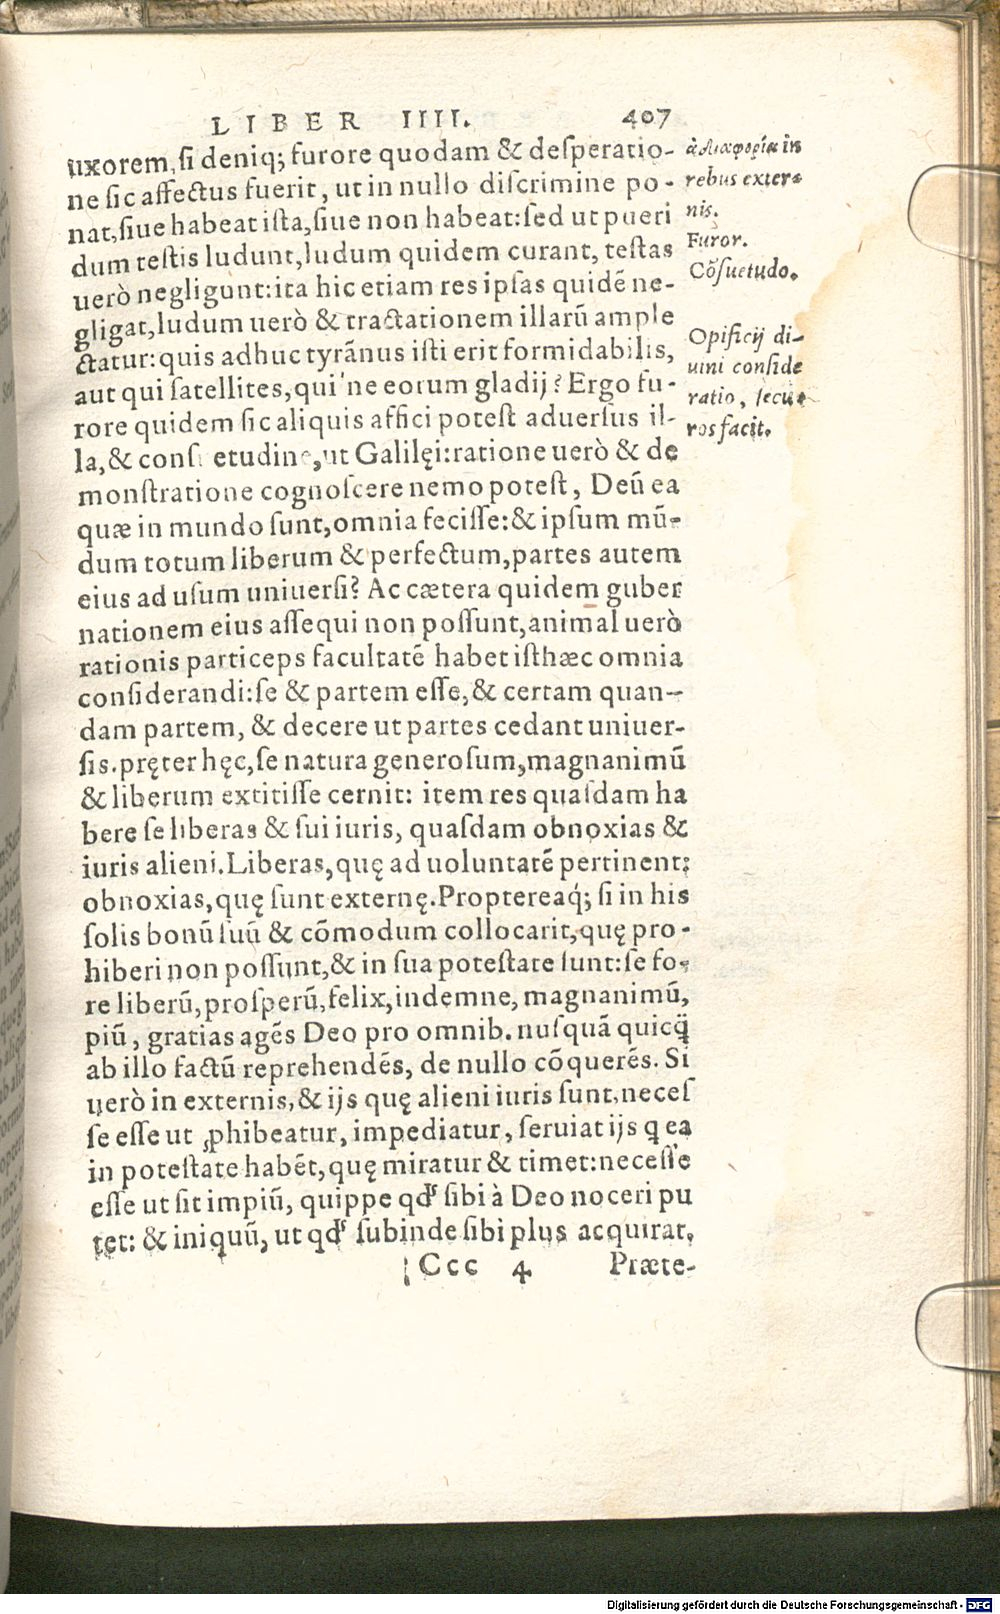 LIBER IIII. 407
uxorem, ſi deniq; furore quodam & deſperatio-
ne ſic affectus fuerit, ut in nullo diſcrimine po-
nat, ſiue habeat iſta, ſiue non habeat: ſed ut pueri
dum teſtis ludunt, ludum quidem curant, teſtas
uerò negligunt: ita hic etiam res ipſas quidẽ ne-
gligat, ludum uerò & tractationem illarũ ample
ctatur: quis adhuc tyrãnus iſti erit formidabilis,
aut qui ſatellites, qui'ne eorum gladij? Ergo fu-
rore quidem ſic aliquis affici poteſt aduerſus il-
la, & conſuetudine, ut Galilęi: ratione uerò & de
monſtratione cognoſcere nemo poteſt, Deũ ea
quæ in mundo ſunt, omnia feciſſe: & ipſum mũ-
dum totum liberum & perfectum, partes autem
eius ad uſum uniuerſi? Ac cætera quidem guber
nationem eius aſſequi non poſſunt, animal uerò
rationis particeps facultatẽ habet iſthæc omnia
conſiderandi: ſe & partem eſſe, & certam quan-
dam partem, & decere ut partes cedant uniuer-
ſis. pręter hęc, ſe natura generoſum, magnanimũ
& liberum extitiſſe cernit: item res quaſdam ha
bere ſe liberas & ſui iuris, quaſdam obnoxias &
iuris alieni. Liberas, quę ad uoluntatẽ pertinent:
obnoxias, quę ſunt externę. Propterea q́; ſi in his
ſolis bonũ ſuũ & cõmodum collocarit, quę pro-
hiberi non poſſunt, & in ſua poteſtate ſunt: ſe fo-
re liberũ, proſperũ, felix, indemne, magnanimũ,
piũ, gratias agẽs Deo pro omnib. nuſquã quicq̃
ab illo factũ reprehendẽs, de nullo cõquerẽs. Si
uerò in externis, & ijs quę alieni iuris ſunt, neceſ
ſe eſſe ut ꝓhibeatur, impediatur, ſeruiat ijs q ea
in poteſtate habẽt, quę miratur & timet: neceſſe
eſſe ut ſit impiũ, quippe qđ ſibi à Deo noceri pu
tet: & iniquũ, ut qđ ſubinde ſibi plus acquirat.
Ccc 4 Præte-
ἀδιαφορία in
rebus exter-
nis.
Furor.
Cõſuetudo.
Opificij di-
uini conſide
ratio, ſecu-
ros facit.
Digitalisierung gefördert durch die Deutsche Forschungsgemeinschaft - DFG